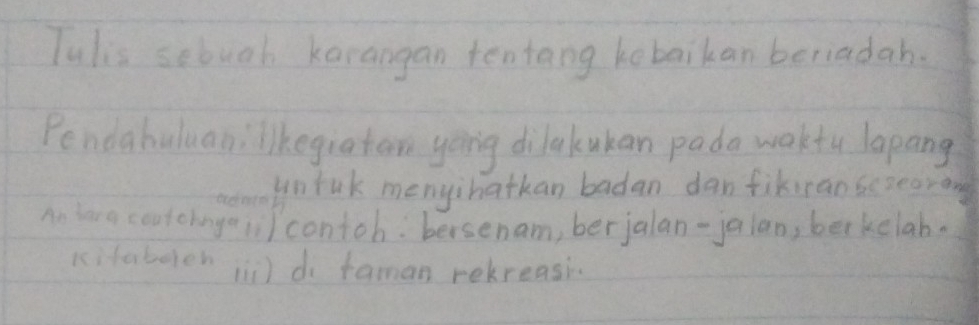 Tulis sebuah karangan tentang kebaikan beriadah.
Pendahuluan: i) kegiatan yang dilakukan pada waktu lapang
untuk menyihatkan badan dan fikiran seseorang
Antara contohnya adalah ii) contoh: bersenam, berjalan-jalan, berkelah.
Kita boleh iii) di taman rekreasi.